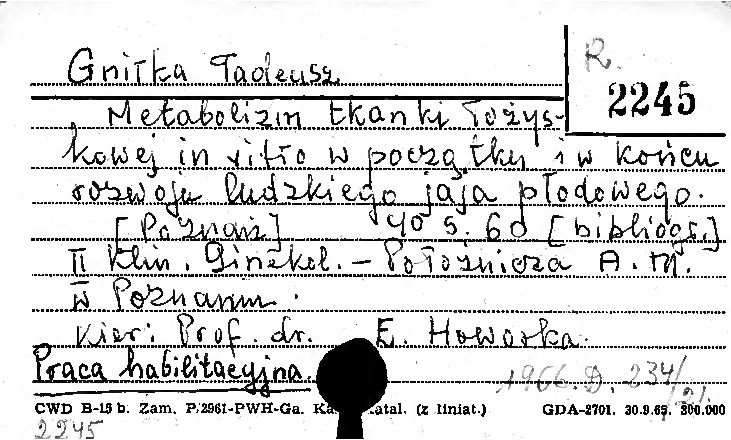 R.
2245
Gniłka Tadeusz
Metabolizm tkanki łożys-
kowej in vitro w początku i w końcu
rozwoju ludzkiego jaja płodowego.
[Poznań] 40 s. 60 [bibliogr.]
II Klin. Ginekol. - Położnicza A. M.
w Poznaniu.
Kier: Prof. dr. E. Howorka.
Praca habilitacyjna
1966. D. 234/
/21
CWD B-15 b. Zam. P/2961-PWH-Ga. Ka atal. (z liniat.) GDA-2701. 30.9.65. 300.000
2245